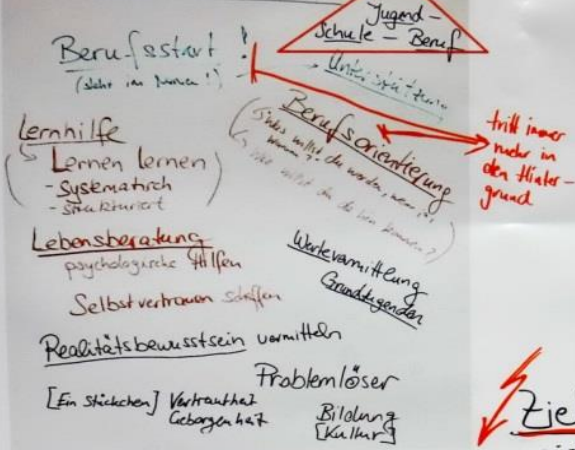 Jugend -
Schule - Beruf
Berufsstart!
(steht im Namen!)
Unterstützung
Berufsorientierung
willst du werden, wenn
warum?
willst du da hin kommen?)
tritt immer
mehr in
den Hinter-
grund
Lernhilfe
Lernen lernen
- systematisch
- strukturiert
Lebensberatung
psychologische Hilfen
Selbstvertrauen schaffen
Wertevermittlung
Grundtugenden
Realitätsbewusstsein vermitteln
Problemlöser
[Ein Stückchen] Vertrautheit
Geborgenheit
Bildung
[Kultur]
Zie